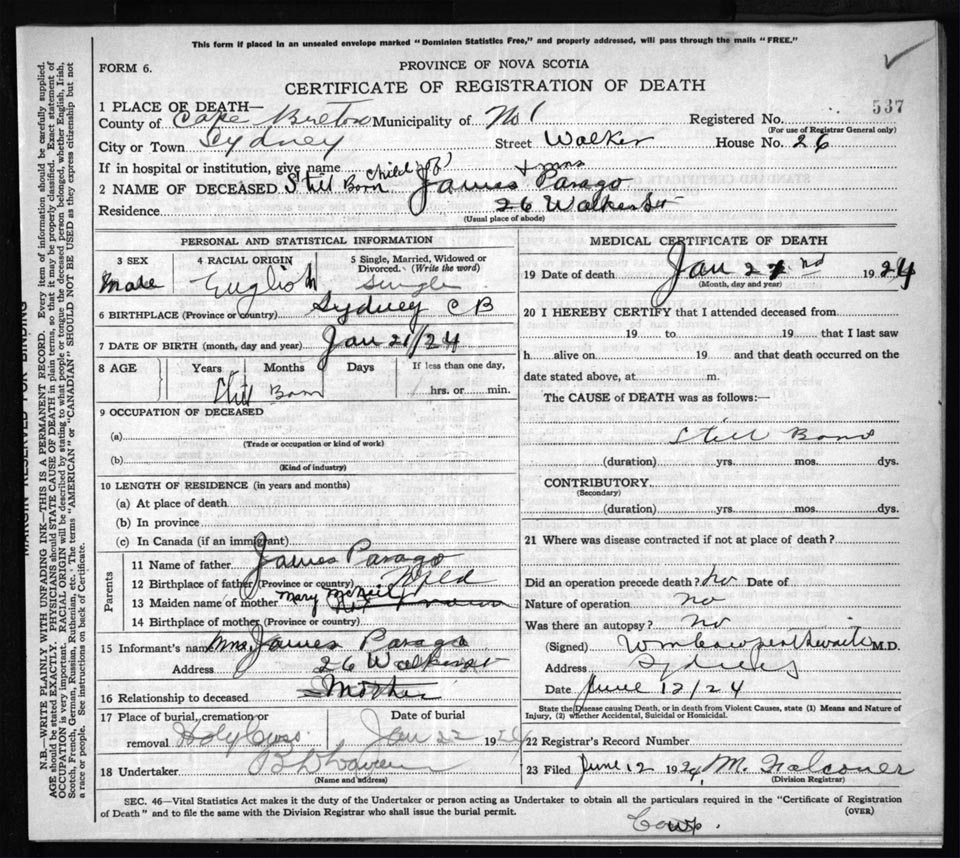 This form if placed in an unsealed envelope marked "Dominion Statistics Free," and properly addressed, will pass through the mails "FREE."
FORM 6.
PROVINCE OF NOVA SCOTIA
CERTIFICATE OF REGISTRATION OF DEATH
537
1 PLACE OF DEATH—
County of Cape Breton Municipality of No 1 Registered No.
(For use of Registrar General only)
City or Town Sydney Street Walker House No. 26
If in hospital or institution, give name
2 NAME OF DECEASED Still Born child of James + mrs Parago
Residence 26 Walker St
(Usual place of abode)
PERSONAL AND STATISTICAL INFORMATION
3 SEX Male
4 RACIAL ORIGIN English
5 Single, Married, Widowed or Divorced. (Write the word) Single
6 BIRTHPLACE (Province or country) Sydney C B
7 DATE OF BIRTH (month, day and year) Jan 21/24
8 AGE Years Months Days If less than one day,
Still Born hrs. or min.
9 OCCUPATION OF DECEASED
(a)
(Trade or occupation or kind of work)
(b)
(Kind of industry)
10 LENGTH OF RESIDENCE (in years and months)
(a) At place of death
(b) In province
(c) In Canada (if an immigrant)
Parents
11 Name of father James Parago
12 Birthplace of father (Province or country) Nfld
13 Maiden name of mother Mary McNeil
14 Birthplace of mother (Province or country)
15 Informant's name Mrs. James Parago
Address 26 Walker St
16 Relationship to deceased Mother
17 Place of burial, cremation or Date of burial
removal Holy Cross Jan 22 1924
18 Undertaker
(Name and address)
MEDICAL CERTIFICATE OF DEATH
19 Date of death Jan 22nd 1924
(Month, day and year)
20 I HEREBY CERTIFY that I attended deceased from
19 to 19 that I last saw
h alive on 19 and that death occurred on the
date stated above, at m.
The CAUSE of DEATH was as follows:—
Still Born
(duration) yrs. mos. dys.
CONTRIBUTORY
(Secondary)
(duration) yrs. mos. dys.
21 Where was disease contracted if not at place of death?
Did an operation precede death? no Date of
Nature of operation no
Was there an autopsy? No
(Signed) M.D.
Address Sydney
Date June 12/24
State the Disease causing Death, or in death from Violent Causes, state (1) Means and Nature of
Injury, (2) whether Accidental, Suicidal or Homicidal.
22 Registrar's Record Number
23 Filed June 12 1924, M. Falconer
(Division Registrar)
SEC. 46—Vital Statistics Act makes it the duty of the Undertaker or person acting as Undertaker to obtain all the particulars required in the "Certificate of Registration
of Death" and to file the same with the Division Registrar who shall issue the burial permit. (OVER)
MARGIN RESERVED FOR BINDING
N.B.—WRITE PLAINLY WITH UNFADING INK—THIS IS A PERMANENT RECORD. Every item of information should be carefully supplied.
AGE should be stated EXACTLY. PHYSICIANS should STATE CAUSE OF DEATH in plain terms, so that it may be properly classified. Exact statement of
OCCUPATION is very important. RACIAL ORIGIN will be described by stating to what people or tongue the deceased person belonged, whether English, Irish,
Scotch, French, German, Russian, Ruthenian, etc. The terms "AMERICAN" or "CANADIAN" SHOULD NOT BE USED as they express citizenship but not
a race or people. See instructions on back of Certificate.